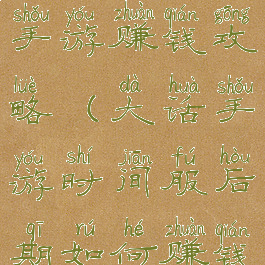 shǒu yóu zhuàn qián gōng
手游赚钱攻
lüè dà huà shǒu
略（大话手
yóu shí jiān fú hòu
游时间服后
qī rú hé zhuàn qián
期如何赚钱